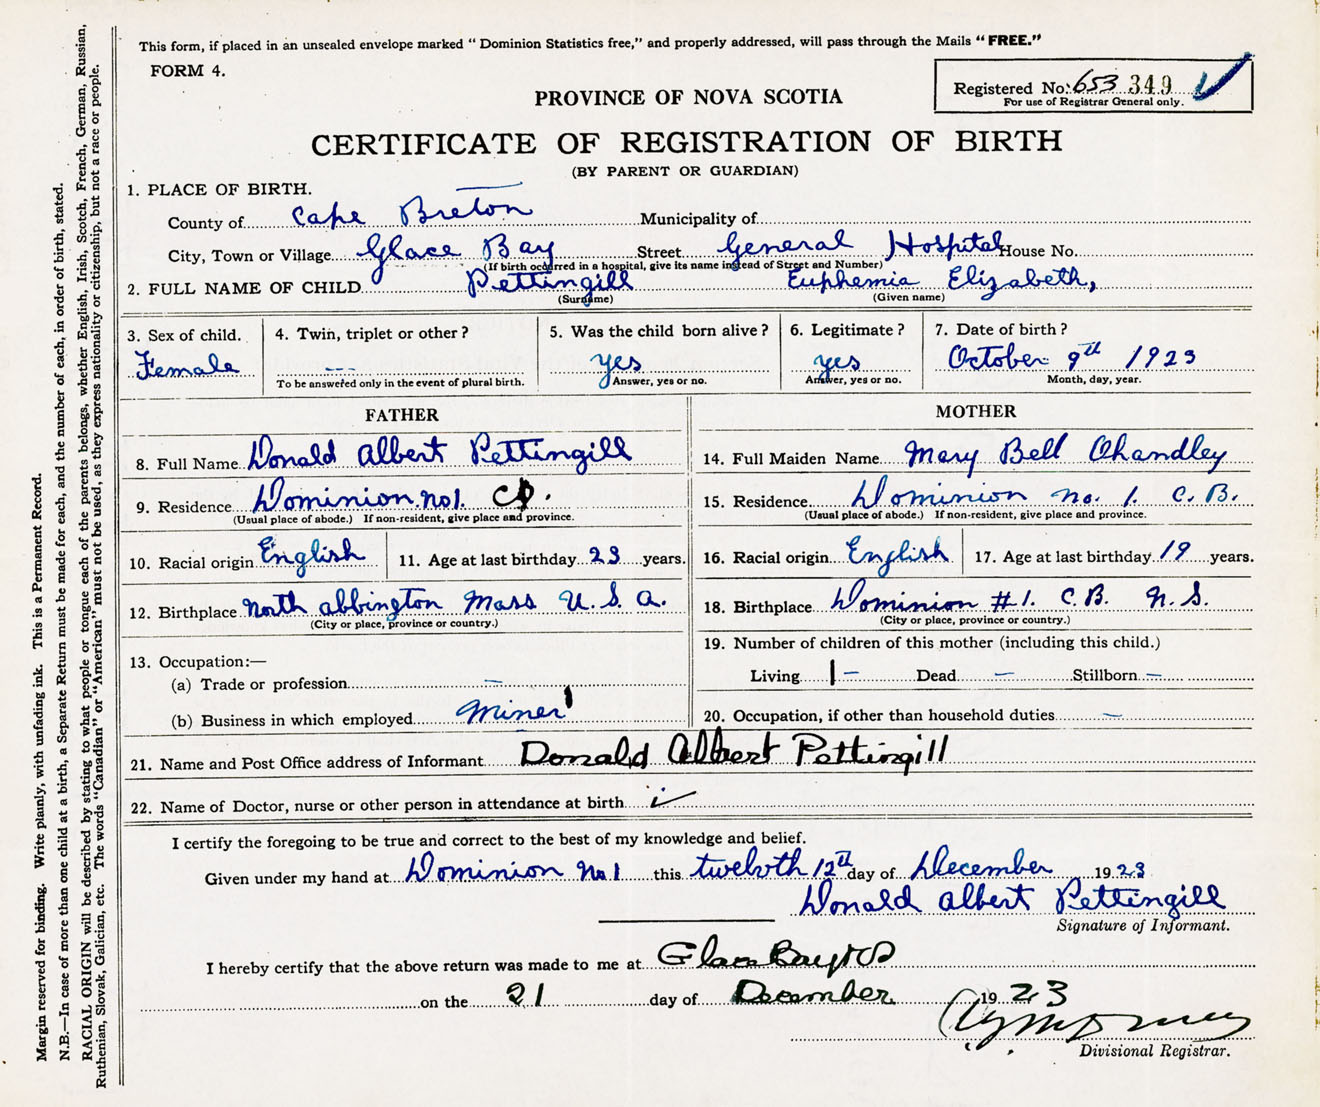 This form, if placed in an unsealed envelope marked " Dominion Statistics free," and properly addressed, will pass through the Mails " FREE."
FORM 4.
Registered No. 653 349
For use of Registrar General only.
PROVINCE OF NOVA SCOTIA
CERTIFICATE OF REGISTRATION OF BIRTH
(BY PARENT OR GUARDIAN)
1. PLACE OF BIRTH.
County of Cape Breton Municipality of
City, Town or Village Glace Bay Street General Hospital House No.
(If birth occurred in a hospital, give its name instead of Street and Number)
2. FULL NAME OF CHILD Pettingill Euphemia Elizabeth,
(Surname) (Given name)
3. Sex of child. Female
4. Twin, triplet or other ? ---
To be answered only in the event of plural birth.
5. Was the child born alive ? yes
Answer, yes or no.
6. Legitimate ? yes
Answer, yes or no.
7. Date of birth ? October 9th 1923
Month, day, year.
FATHER
8. Full Name Donald Albert Pettingill
9. Residence Dominion No 1. C.B.
(Usual place of abode.) If non-resident, give place and province.
10. Racial origin English 11. Age at last birthday 23 years.
12. Birthplace North abbington Mass U. S. A.
(City or place, province or country.)
13. Occupation:—
(a) Trade or profession —
(b) Business in which employed Miner
MOTHER
14. Full Maiden Name Mary Bell Chandley
15. Residence Dominion No. 1. C. B.
(Usual place of abode.) If non-resident, give place and province.
16. Racial origin English 17. Age at last birthday 19 years.
18. Birthplace Dominion #1. C.B. N.S.
(City or place, province or country.)
19. Number of children of this mother (including this child.)
Living 1 — Dead — Stillborn —
20. Occupation, if other than household duties —
21. Name and Post Office address of Informant Donald Albert Pettingill
22. Name of Doctor, nurse or other person in attendance at birth
I certify the foregoing to be true and correct to the best of my knowledge and belief.
Given under my hand at Dominion No 1 this twelvth 12th day of December 1923
Donald Albert Pettingill
Signature of Informant.
I hereby certify that the above return was made to me at Glace Bay
on the 21 day of December 1923
Divisional Registrar.
Margin reserved for binding. Write plainly, with unfading ink. This is a Permanent Record.
N.B.—In case of more than one child at a birth, a Separate Return must be made for each, and the number of each, in order of birth, stated.
RACIAL ORIGIN will be described by stating to what people or tongue each of the parents belongs, whether English, Irish, Scotch, French, German, Russian,
Ruthenian, Slovak, Galician, etc. The words "Canadian" or "American" must not be used, as they express nationality or citizenship, but not a race or people.